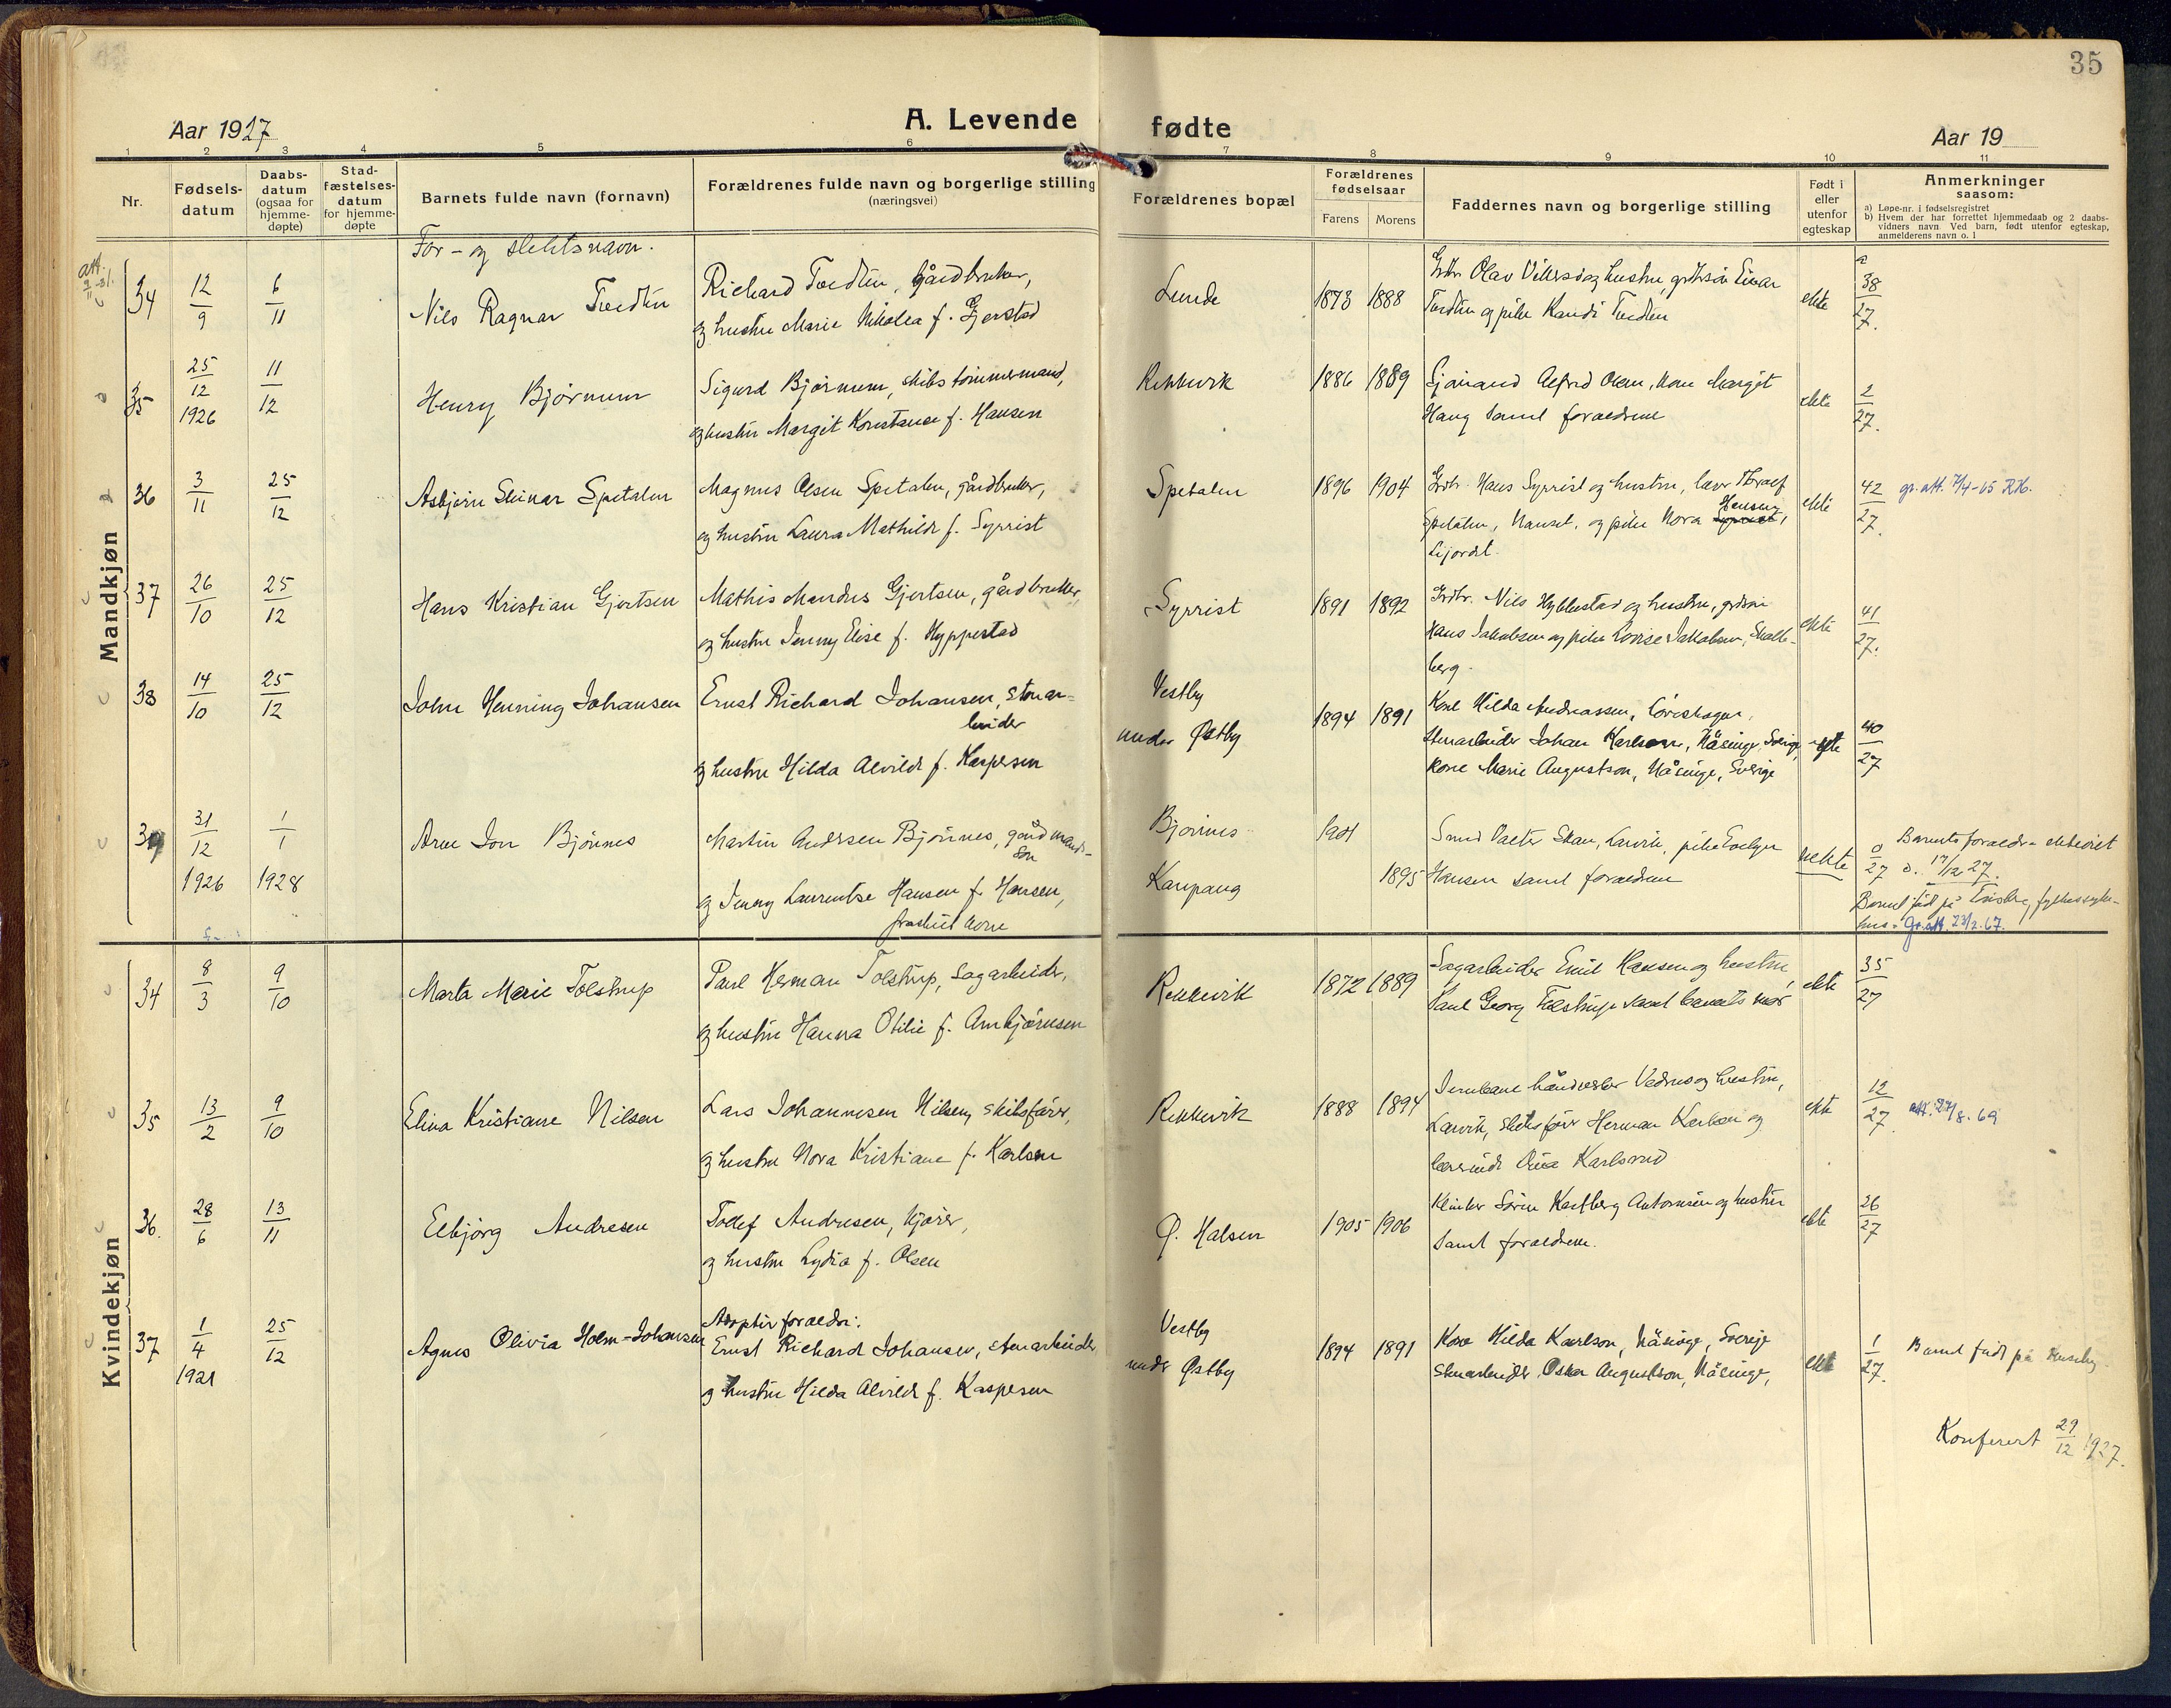 35
Aar 1927
A. Levende fødte
Aar 19
1 2 3 4 5 6 7 8 9 10 11
Nr.
Fødsels-
datum
Daabs-
datum
(ogsaa for
hjemme-
døpte)
Stad-
fæstelses-
datum
for hjemme-
døpte
Barnets fulde navn (fornavn)
Forældrenes fulde navn og borgerlige stilling
(næringsvei)
Forældrenes bopæl
Forældrenes
fødselsaar
Farens Morens
Faddernes navn og borgerlige stilling
Født i
eller
utenfor
egteskap
Anmerkninger
saasom:
a) Løpe-nr. i fødselsregistret
b) Hvem der har forrettet hjemmedaab og 2 daabs-
vidners navn. Ved barn, født utenfor egteskap,
anmelderens navn o. l
For- og slektsnavn.
Mandkjøn
34 12/9 6/11 Nils Ragnar Tvedten
Richard Tvedten, gårdbruker,
og hustru Marie Nikolea f. Gjerstad
Lunde 1873 1888
Grdbr. Olav Vittersö og hustru, grdbrsön Einar
Tvedten og pike Kandi Tvedten
ekte 38/27.
35 25/12 1926 11/12 Henry Bjørnum
Sigurd Bjørnum, skibstömmermand,
og hustru Margit Konstanse f. Hansen
Rekkevik 1886 1889
Sjömand Alfred Olsen, kone Margit
Haug samt foraeldrene
ekte 2/27.
36 3/11 25/12 Asbjørn Steinar Spetalen
Magnus Olsen Spetalen, gårdbruker,
og hustru Laura Mathilde f. Syrrist
Spetalen 1896 1904
Grdbr. Hans Syrrist og hustru,
Spetalen, Nanset, og pike Nora Hensen,
ekte 42/27. gr. att. 7/4-65 RH.
37 26/10 25/12 Hans Kristian Gjertsen
Mathis Mandus Gjertsen, gårdbruker,
og hustru Jenny Elise f. Hyppestad
Syrrist 1891 1892
Grdbr. Nils Hybbestad og hustru, grdsön
Hans Jakobsen og pike Lovise Jakobsen, Skalle-
berg.
ekte 41/27.
38 14/10 25/12 John Henning Johansen
Ernst Richard Johansen, stenar-
beider
og hustru Hilda Alvilde f. Kaspersen
Vestby
under Østby 1894 1891
Kone Hilda Andreassen,
Stenarbeider Johan Karlson, Näsinge, Sverige,
kone Marie Augustson, Näsinge, Sverige
ekte 40/27
39 31/12 1926 1/1 1928 Arne Jon Bjönnes
Martin Andersen Bjönnes, gårdmands-
sön
og Jenny Laurentse Hansen f. Hansen,
fraskilt kone
Bjönnes
Kaupang 1901 1895
Smed Valter Skau, Larvik, pike Evelyn
Hansen samt foraeldrene
uekte 0/27 Barnets foraeldre ekteviet
d. 17/12 27.
Barnet födt på Tönsberg fylkessyke-
hus. Gr. att. 23/2.67.
Kvindekjøn
34 8/3 9/10 Marta Marie Tolstrup
Paul Herman Tolstrup, sagarbeider,
og hustru Hanna Otilie f. Arnbjørnsen
Rekkevik 1872 1889
Sagarbeider Emil Hansen og hustru,
Paul Georg Tolstrup samt barnets mor
ekte 35/27
35 13/2 9/10 Elina Kristiane Nilsen
Lars Johannesen Nilsen, skibsförer,
og hustru Nora Kristiane f. Karlsen
Rekkevik 1888 1894
Jernbane håndverker Vadnes og hustru,
Larvik, skibsförer Herman Karlsen og
laererinde Karlsrud
ekte 12/27 att. 27/8.69
36. 28/6 13/11 Elbjörg Andresen
Tollef Andresen, kjörer,
og hustru Lydia f. Olsen
Ø. Halsen 1905 1906
Sören Kastberg Antonsen og hustru
samt foraeldrene.
ekte 26/27
37 1/4 1921 25/12 Agnes Olivia Holm-Johansen
Adoptivforaeldre:
Ernst Richard Johansen, stenarbeider,
og hustru Hilda Alvilde f. Kaspersen
Vestby
under Østby 1894 1891
Kone Hilda Karlson, Näsinge, Sverige
Stenarbeider Oskar Augustson, Näsinge,
ekte 1/27. Barnet födt på Huseby.
Konferert 29/12 1927.